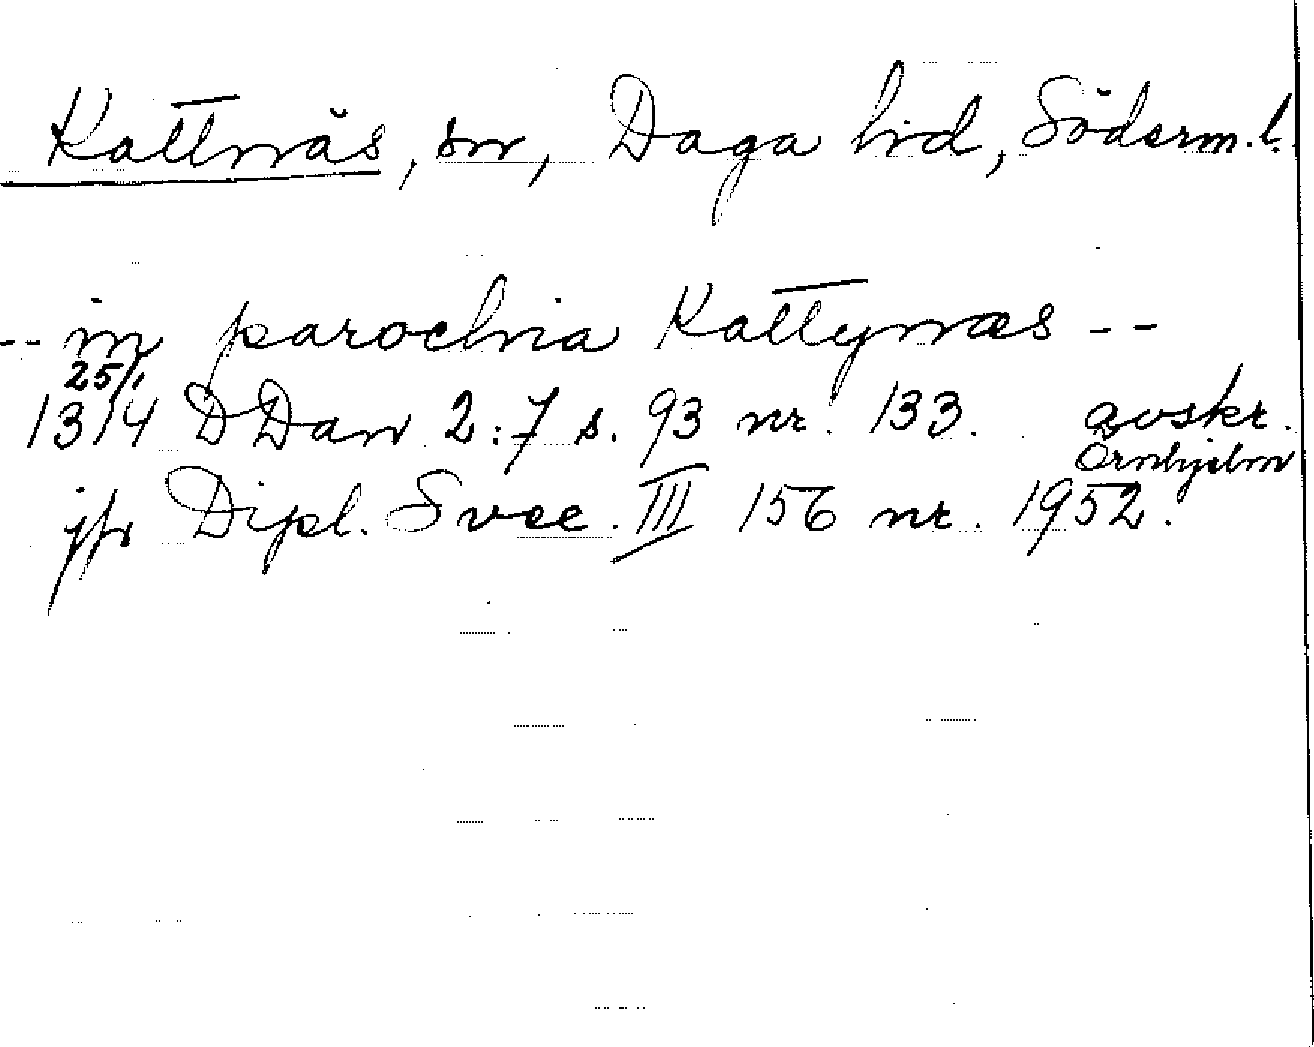 Kattnäs, sn, Daga hd, Söderm.l.
-- in parochia Kattynæs --
25/1
1314 DDan 2:7 s. 93 nr. 133. avskr.
Örnhjelm
jfr Dipl. Svec. III 156 nr. 1952.